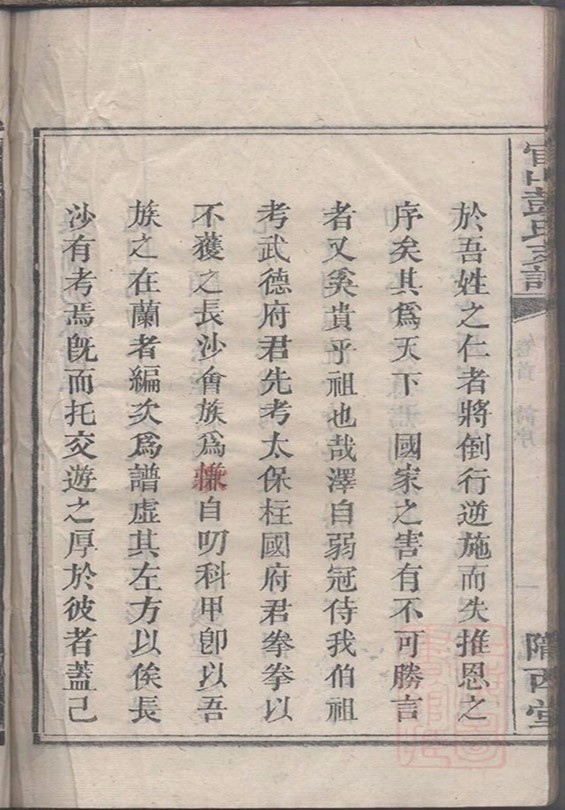 官山彭氏支譜
卷首 詩序
一
隴西堂
於吾姓之仁者將倒行逆施而失推恩之
序矣其為天下國家之害有不可勝言
者又奚貴乎祖也哉澤自弱冠侍我伯祖
考武德府君先考太保柱國府君拳拳以
不獲之長沙會族為慊自叨科甲卽以吾
族之在蘭者編次為譜虛其左方以俟長
沙有考焉旣而托交遊之厚於彼者蓋己